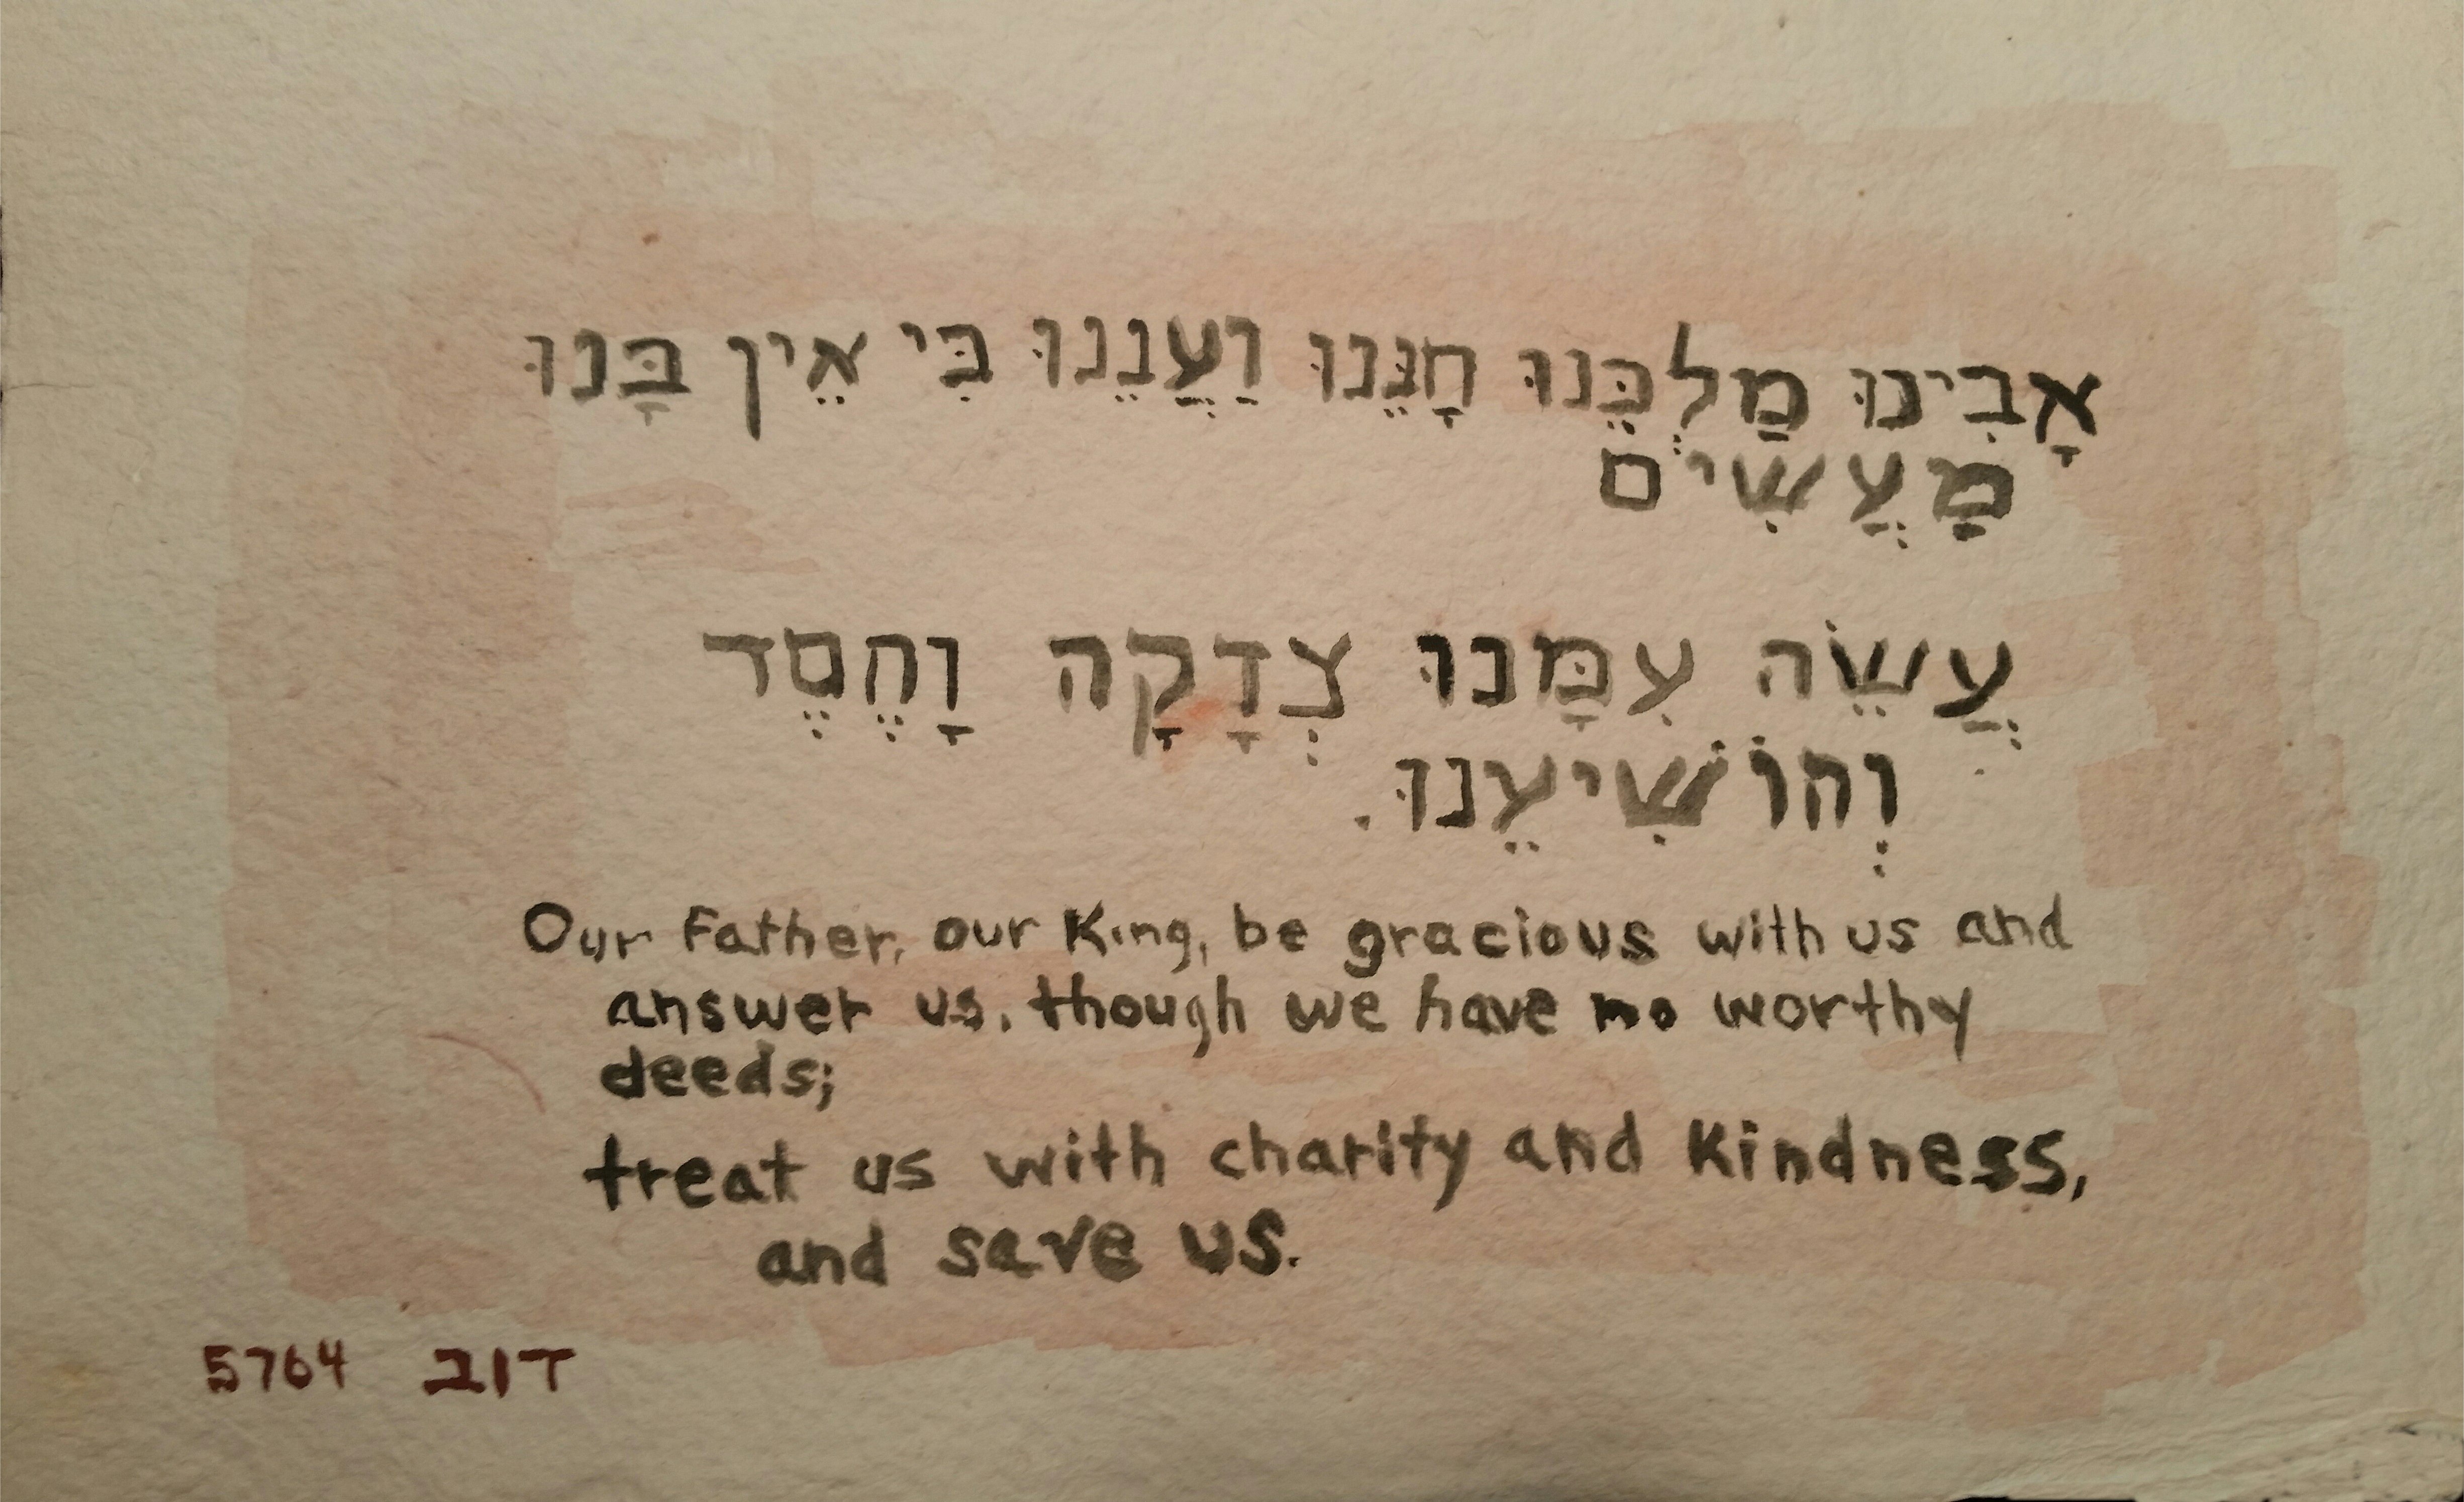 אָבִינוּ מַלְכֵּנוּ חָנֵּנוּ וַעֲנֵנוּ כִּי אֵין בָּנוּ
מַעֲשִׂים
עֲשֵׂה עִמָּנוּ צְדָקָה וָחֶסֶד
וְהוֹשִׁיעֵנוּ.
Our Father, our King, be gracious with us and
answer us, though we have no worthy
deeds;
treat us with charity and kindness,
and save us.
5764 דוב